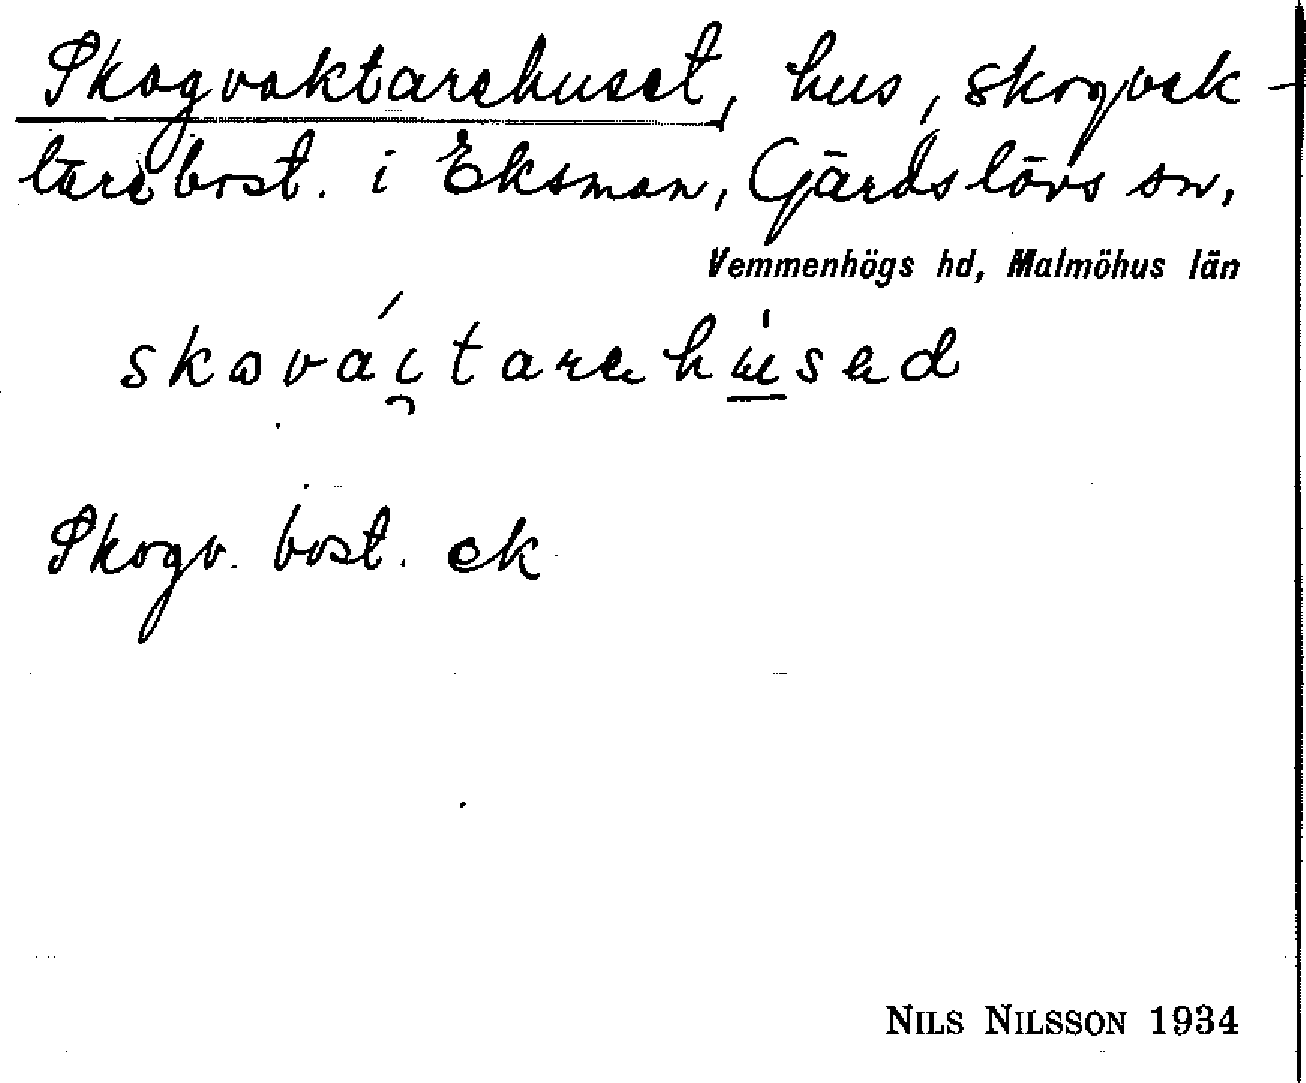 Skogvaktarehuset, hus, skogvak-
tarebost. i Eksman, Gärdslövs sn,
Vemmenhögs hd, Malmöhus län
Skogv. bost. ek
NILS NILSSON 1934